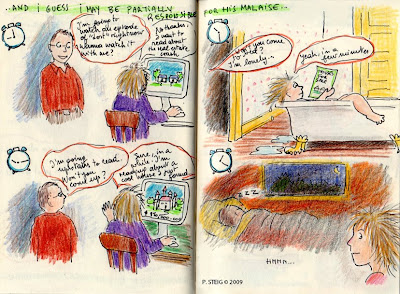 ...AND I GUESS I MAY BE PARTIALLY
RESPONSIBLE
FOR HIS MALAISE...
I'm going to
watch an episode
of "Lost" right now
wanna watch it
with me?
No thanks.
I want to
read about
the real estate
crash
I'm going
upstairs to read.
Won't you
come up?
Sure, in a
while. I'm
reading about a
cool house I
found.
Won't you come
to bed?
I'm lonely..
Yeah, in a
few minutes
ZZZ
HMMM...
P. STEIG © 2009